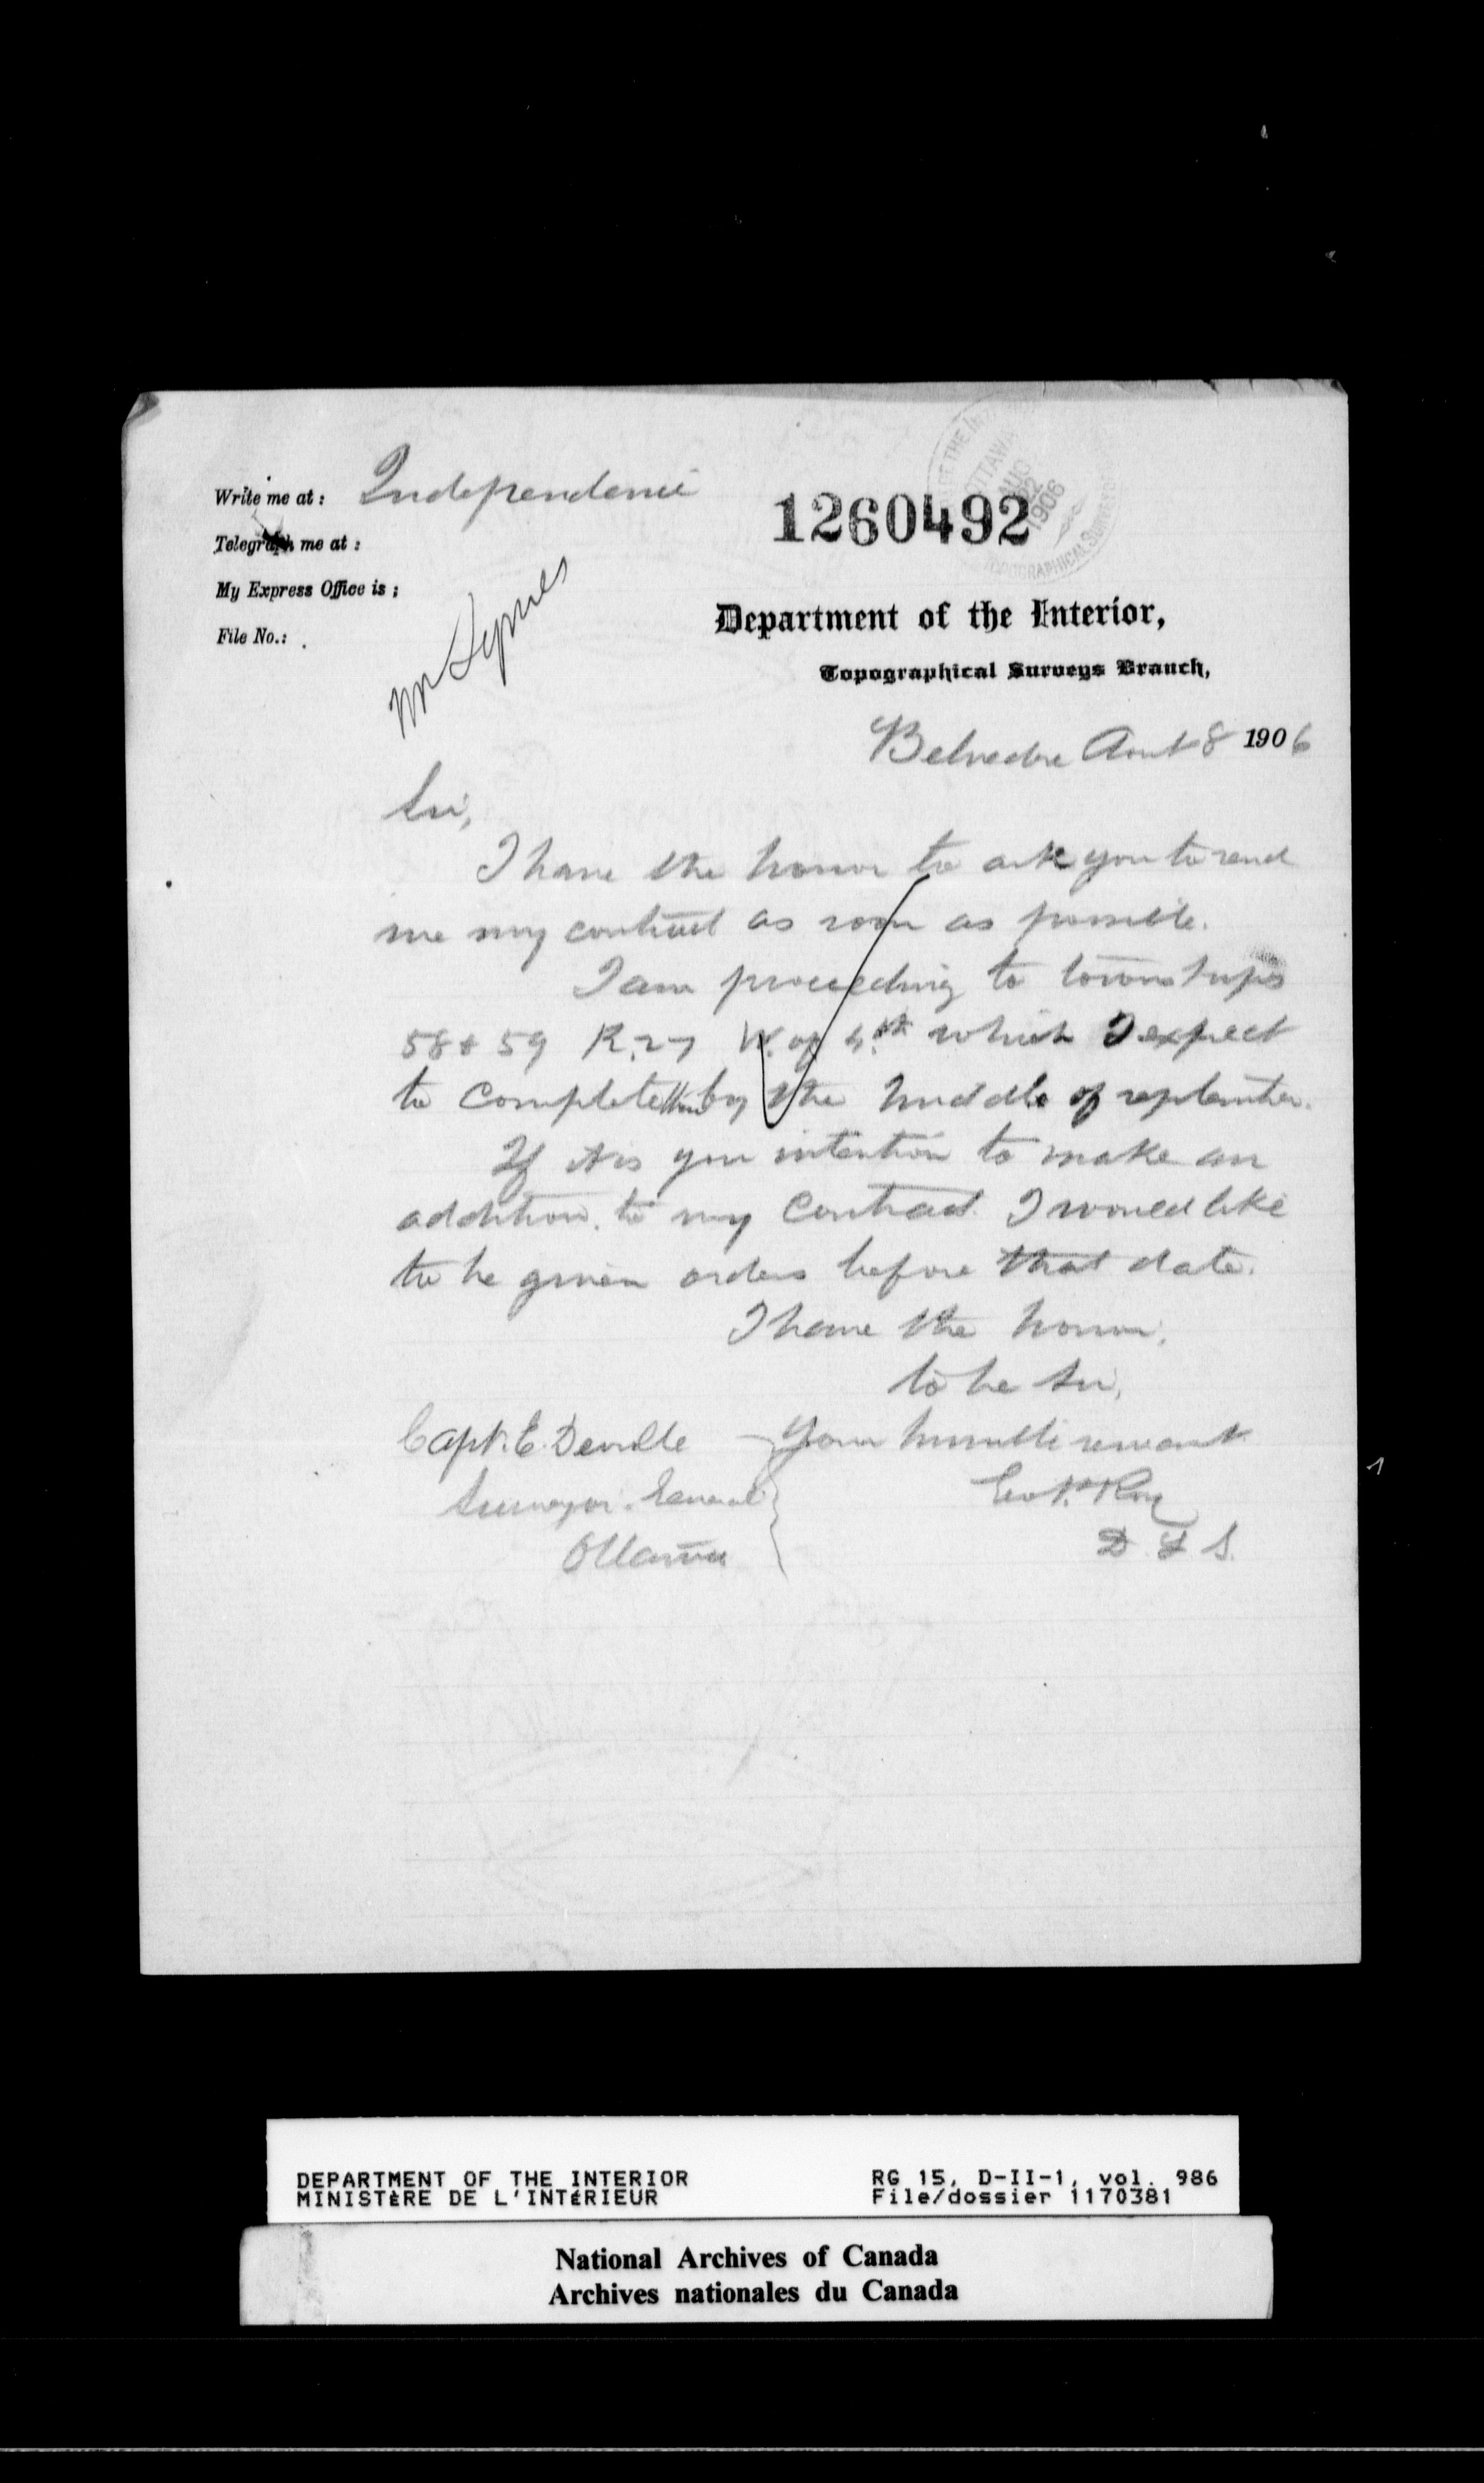 Write me at : Independence
Telegraph me at :
My Express Office is ;
File No.: .
Mr Symes
1260492
OTTAWA
AUG
22
1906
TOPOGRAPHICAL SURVEYS
Department of the Interior,
Topographical Surveys Branch,
Belvedere Aout 8 1906
Sir,
I have the honor to ask you to send
me my contract as soon as possible.
I am proceeding to townships
58 & 59 R. 27 W. of 4.th which I expect
to complete them by the middle of september.
If it is your intention to make an
addition to my contract I would like
to be given orders before that date.
I have the honor,
to be Sir,
Your humble servant
Geo. P. Roy
D L S.
Capt. E. Deville
Surveyor General
Ottawa
DEPARTMENT OF THE INTERIOR
MINISTÈRE DE L'INTÉRIEUR
RG 15, D-II-1, vol. 986
File/dossier 1170381
National Archives of Canada
Archives nationales du Canada